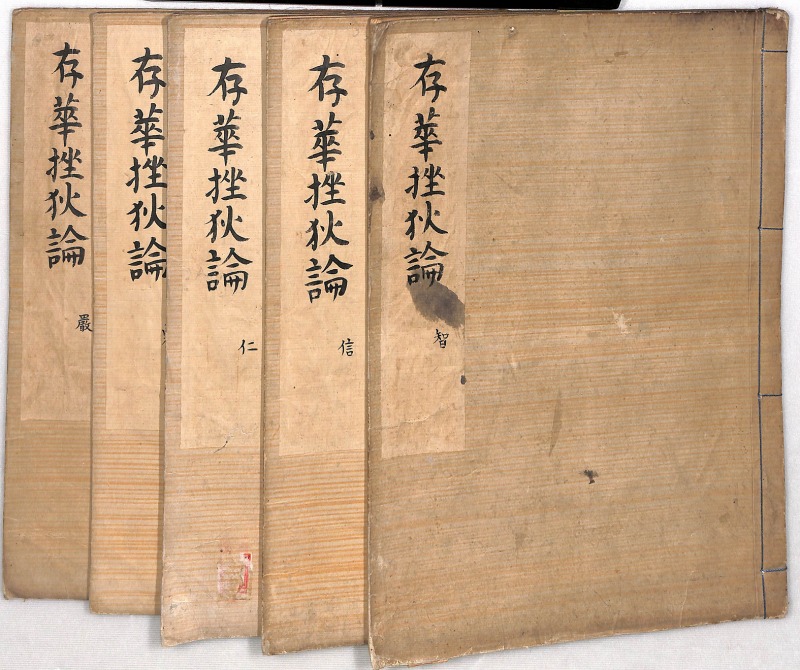 存華挫狄論
智
存華挫狄論
信
存華挫狄論
仁
存華挫狄論
存華挫狄論
嚴